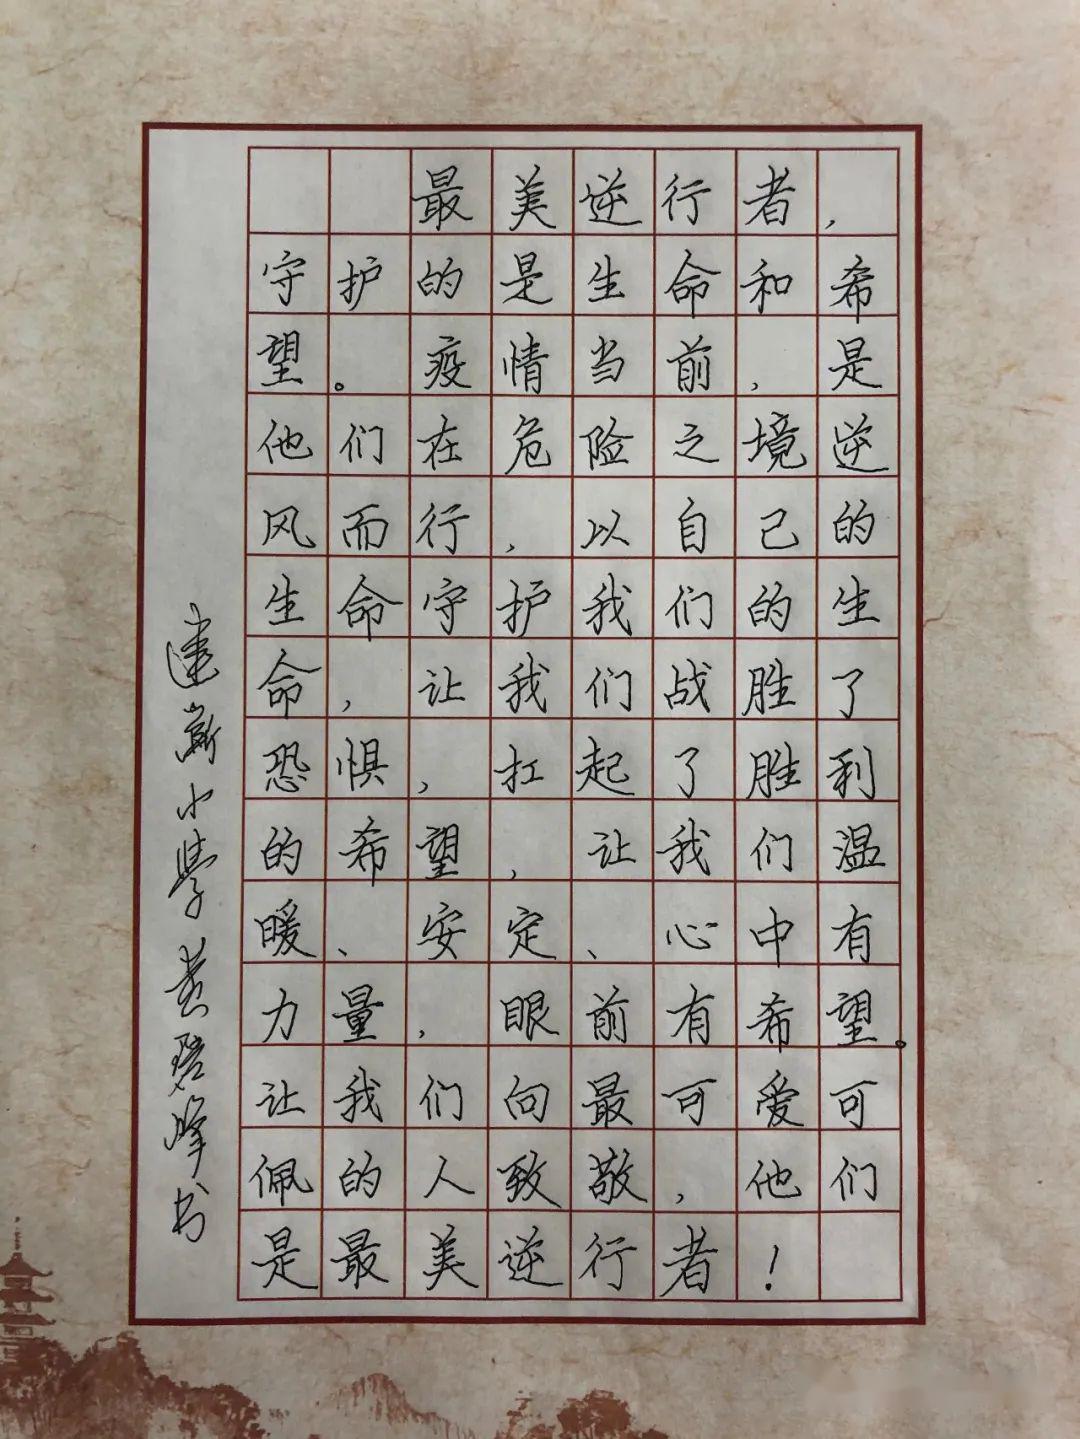 最美逆行者，
守护的是生命和希
望。疫情当前，是
他们在危险之境逆
风而行，以自己的
生命守护我们的生
命，让我们战胜了
恐惧，扛起了胜利
的希望，让我们温
暖、安定、心中有
力量，眼前有希望。
让我们向最可爱可
佩的人致敬，他们
是最美逆行者！
小学黄碧峰书